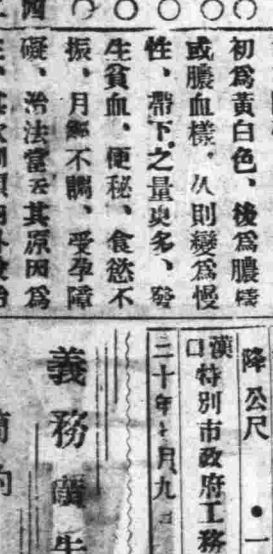 初為黃白色、後為膿樣
或膿血樣、久則變為慢
性、帶下之量更多、發
生貧血、便秘、食慾不
振、月經不調、受孕障
礙、治法當去其原因為
降公尺
漢口特別市政府工務
二十年七月九日
義務
簡約